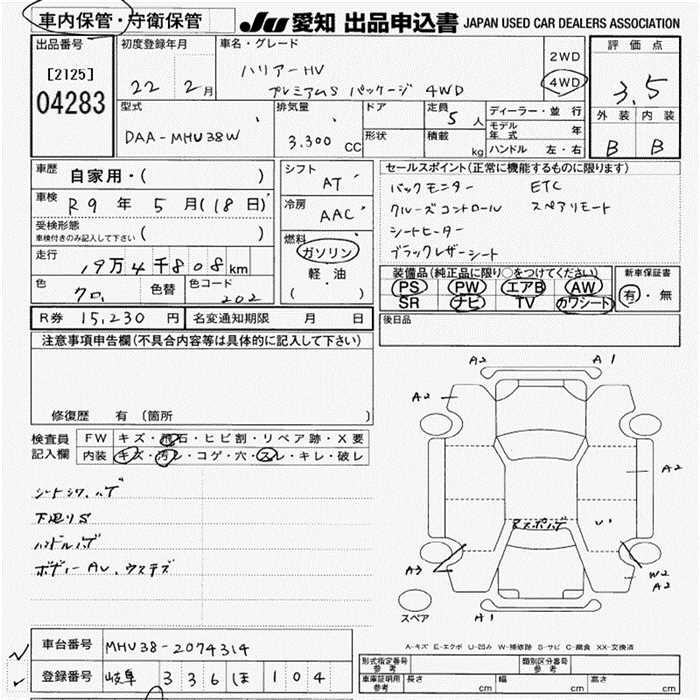 車内保管・守衛保管
JU 愛知 出品申込書 JAPAN USED CAR DEALERS ASSOCIATION
出品番号
[2125]
04283
初度登録年月
22 年 2月
車名・グレード
ハリアーHV
プレミアムS パッケージ 4WD
2WD
4WD
評価点
3.5
外装 内装
B B
型式
DAA-MHU38W
排気量
3.300 CC
ドア
形状
定員 5 人
積載 kg
ディーラー・並行
モデル年式 年
ハンドル 左・右
車歴 自家用・( )
車検 R9 年 5 月(18日)
受検形態
車検付きのみ記入して下さい ( )
走行
19万4千808km
色 クロ 色替 色コード 202
シフト
AT
冷房
AAC
燃料
ガソリン
軽・油
( )
セールスポイント(正常に機能するものに限ります)
バックモニター ETC
クルーズコントロール スペアリモート
シートヒーター
ブラックレザーシート
装備品(純正品に限り○をつけてください)
PS PW エアB AW
SR ナビ TV カワシート
新車保証書
有・無
R券 15,230 円 名変通知期限 月 日
後日品
注意事項申告欄(不具合内容等は具体的に記入して下さい)
修復歴 有(箇所
検査員記入欄
FW キズ・飛石・ヒビ割・リペア跡・X要
内装 キズ・汚レ・コゲ・穴・スレ・キレ・破レ
シートシワ、ハゲ
下廻りS
ハンドルハゲ
ボディーAU、ウスキズ
A2 A1
A2
A2
A3
W2
A2
A1
スペア
A-キズ E-エクボ U-凹み W-補修跡 S-サビ C-腐食 XX-交換済
車台番号 MHU38-2074314
登録番号 岐阜 336 ほ 104
形式指定番号 参考
類別区分番号 参考
車庫証明用 参考 長さ cm 幅 cm 高さ cm